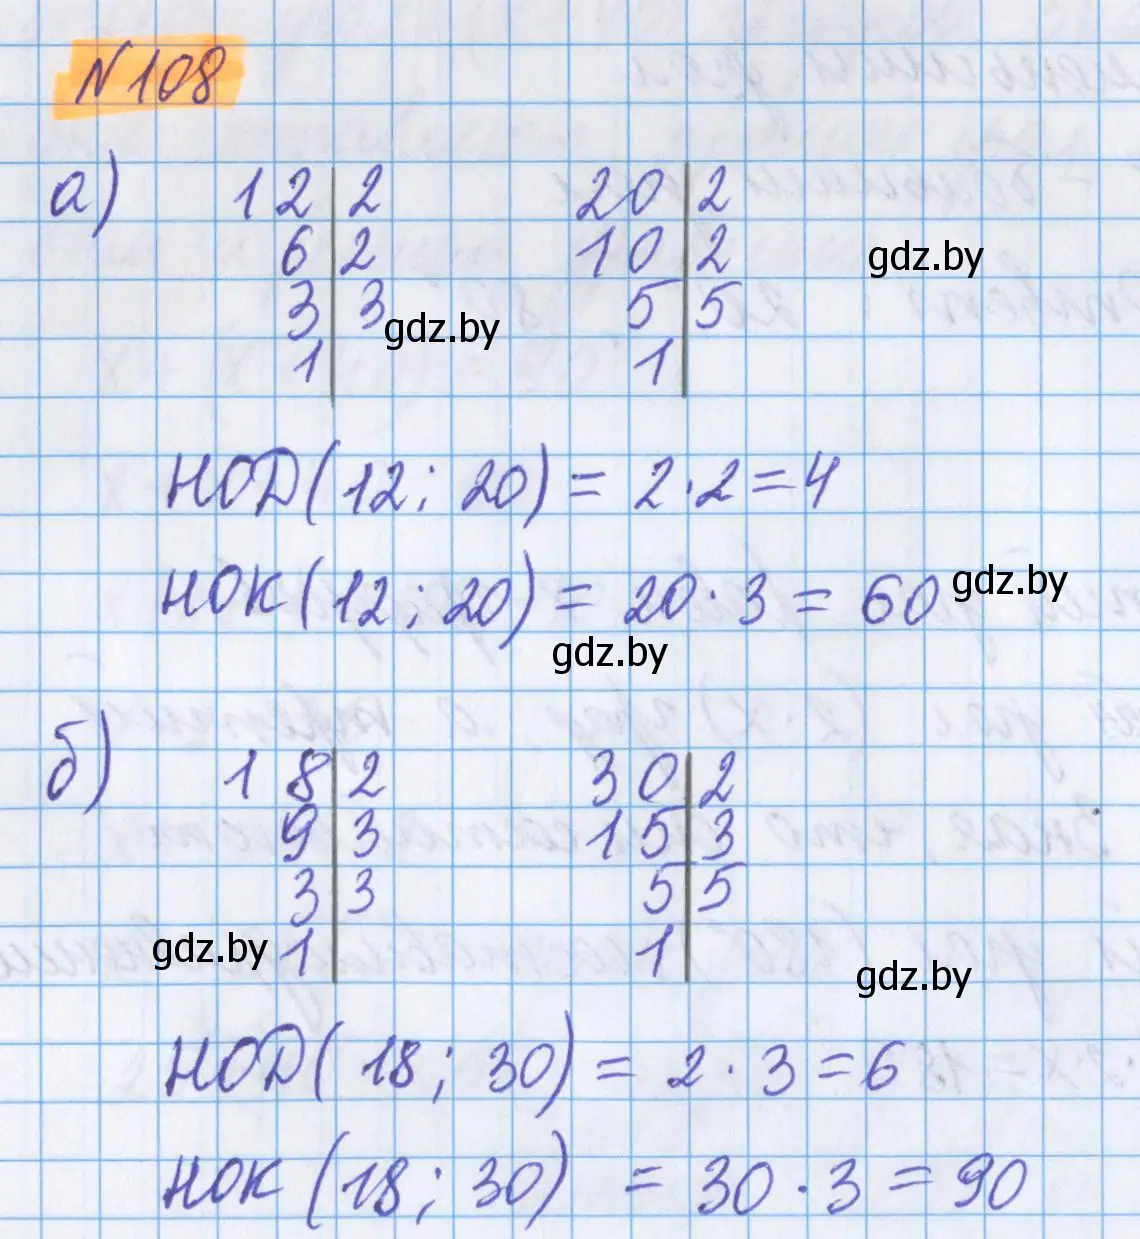 №108
а) 12 | 2 20 | 2
6 | 2 10 | 2 gdz.by
3 | 3 5 | 5
gdz.by
1 | 1 |
НОД(12; 20) = 2·2=4
НОК(12; 20) = 20·3 = 60 gdz.by
gdz.by
б) 18 | 2 30 | 2
9 | 3 15 | 3
3 | 3 5 | 5
gdz.by 1 | 1 |
gdz.by
НОД(18; 30) = 2·3=6
НОК (18; 30) = 30·3=90